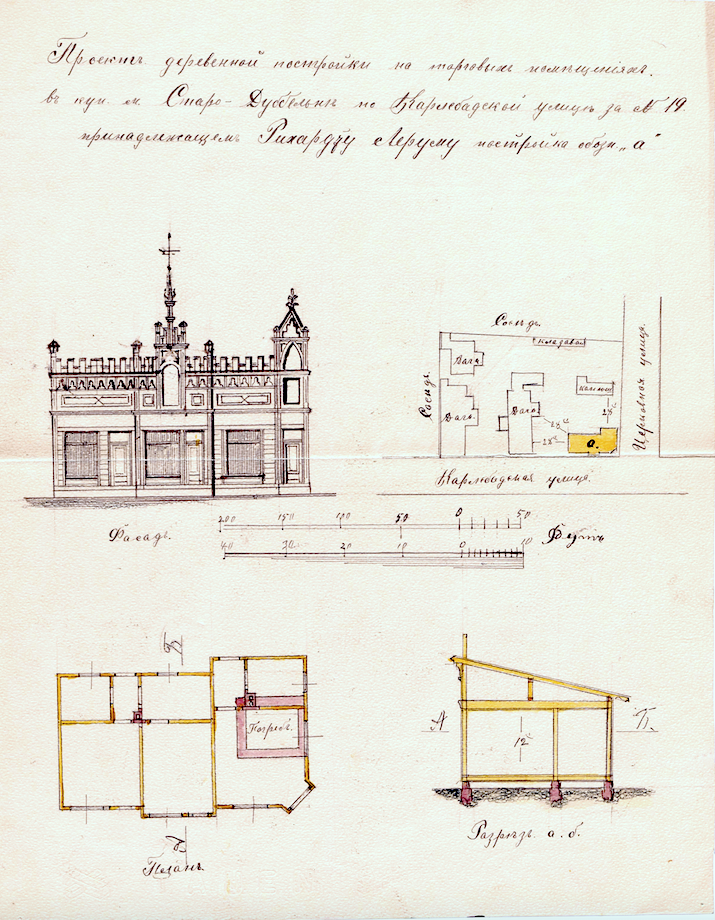 Проектъ деревенной постройки на торговыхъ помѣщеніяхъ.
въ кур. м. Старо-Дуббельнъ по Карлсбадской улицѣ за № 19.
принадлежащемъ Рихарду Лерумъ постройка обозн. „а“
Сосѣдъ.
Кладовая
Дача
Сосѣдъ.
Дача.
Дача
28
28
а.
Церковная улица.
Карлсбадская улица.
Фасадъ.
200 150 100 50 0 50
Футъ
40 30 20 10 0 10
Б
Погребъ.
А
12
Б.
Планъ.
Разрѣзъ а. б.